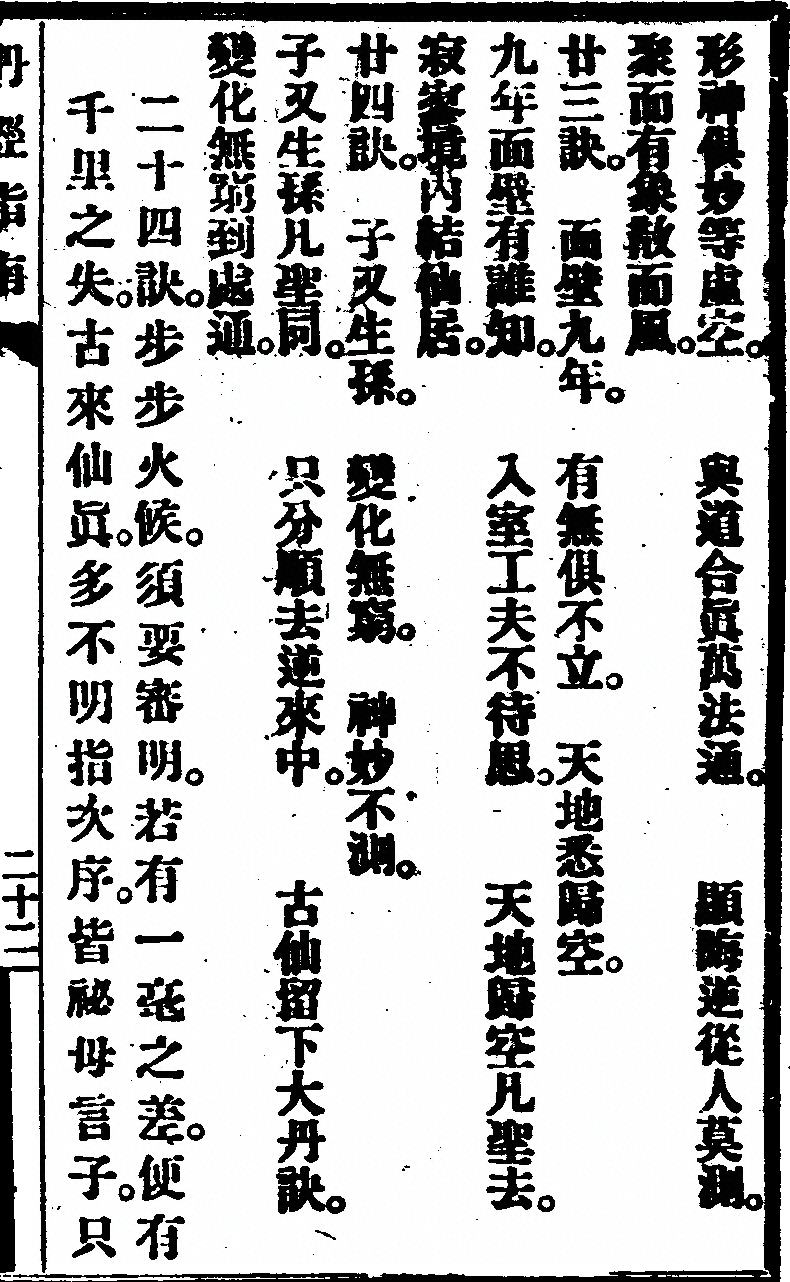 形神俱妙等虛空。　與道合眞萬法通。　顯晦逆從人莫測。
聚面有象散面風。
廿三訣。　面壁九年。　有無俱不立。　天地悉歸空。
九年面壁有誰知。　入室工夫不待思。　天地歸空凡聖去。
寂寥境內結仙居。
廿四訣。　子又生孫。　變化無窮。　神妙不測。
子又生孫凡聖同。　只分順去逆來中。　古仙留下大丹訣。
變化無窮到處通。
二十四訣。步步火候。須要審明。若有一毫之差。便有
千里之失。古來仙眞。多不明指次序。皆祕母言子。只
丹經指南
二十二